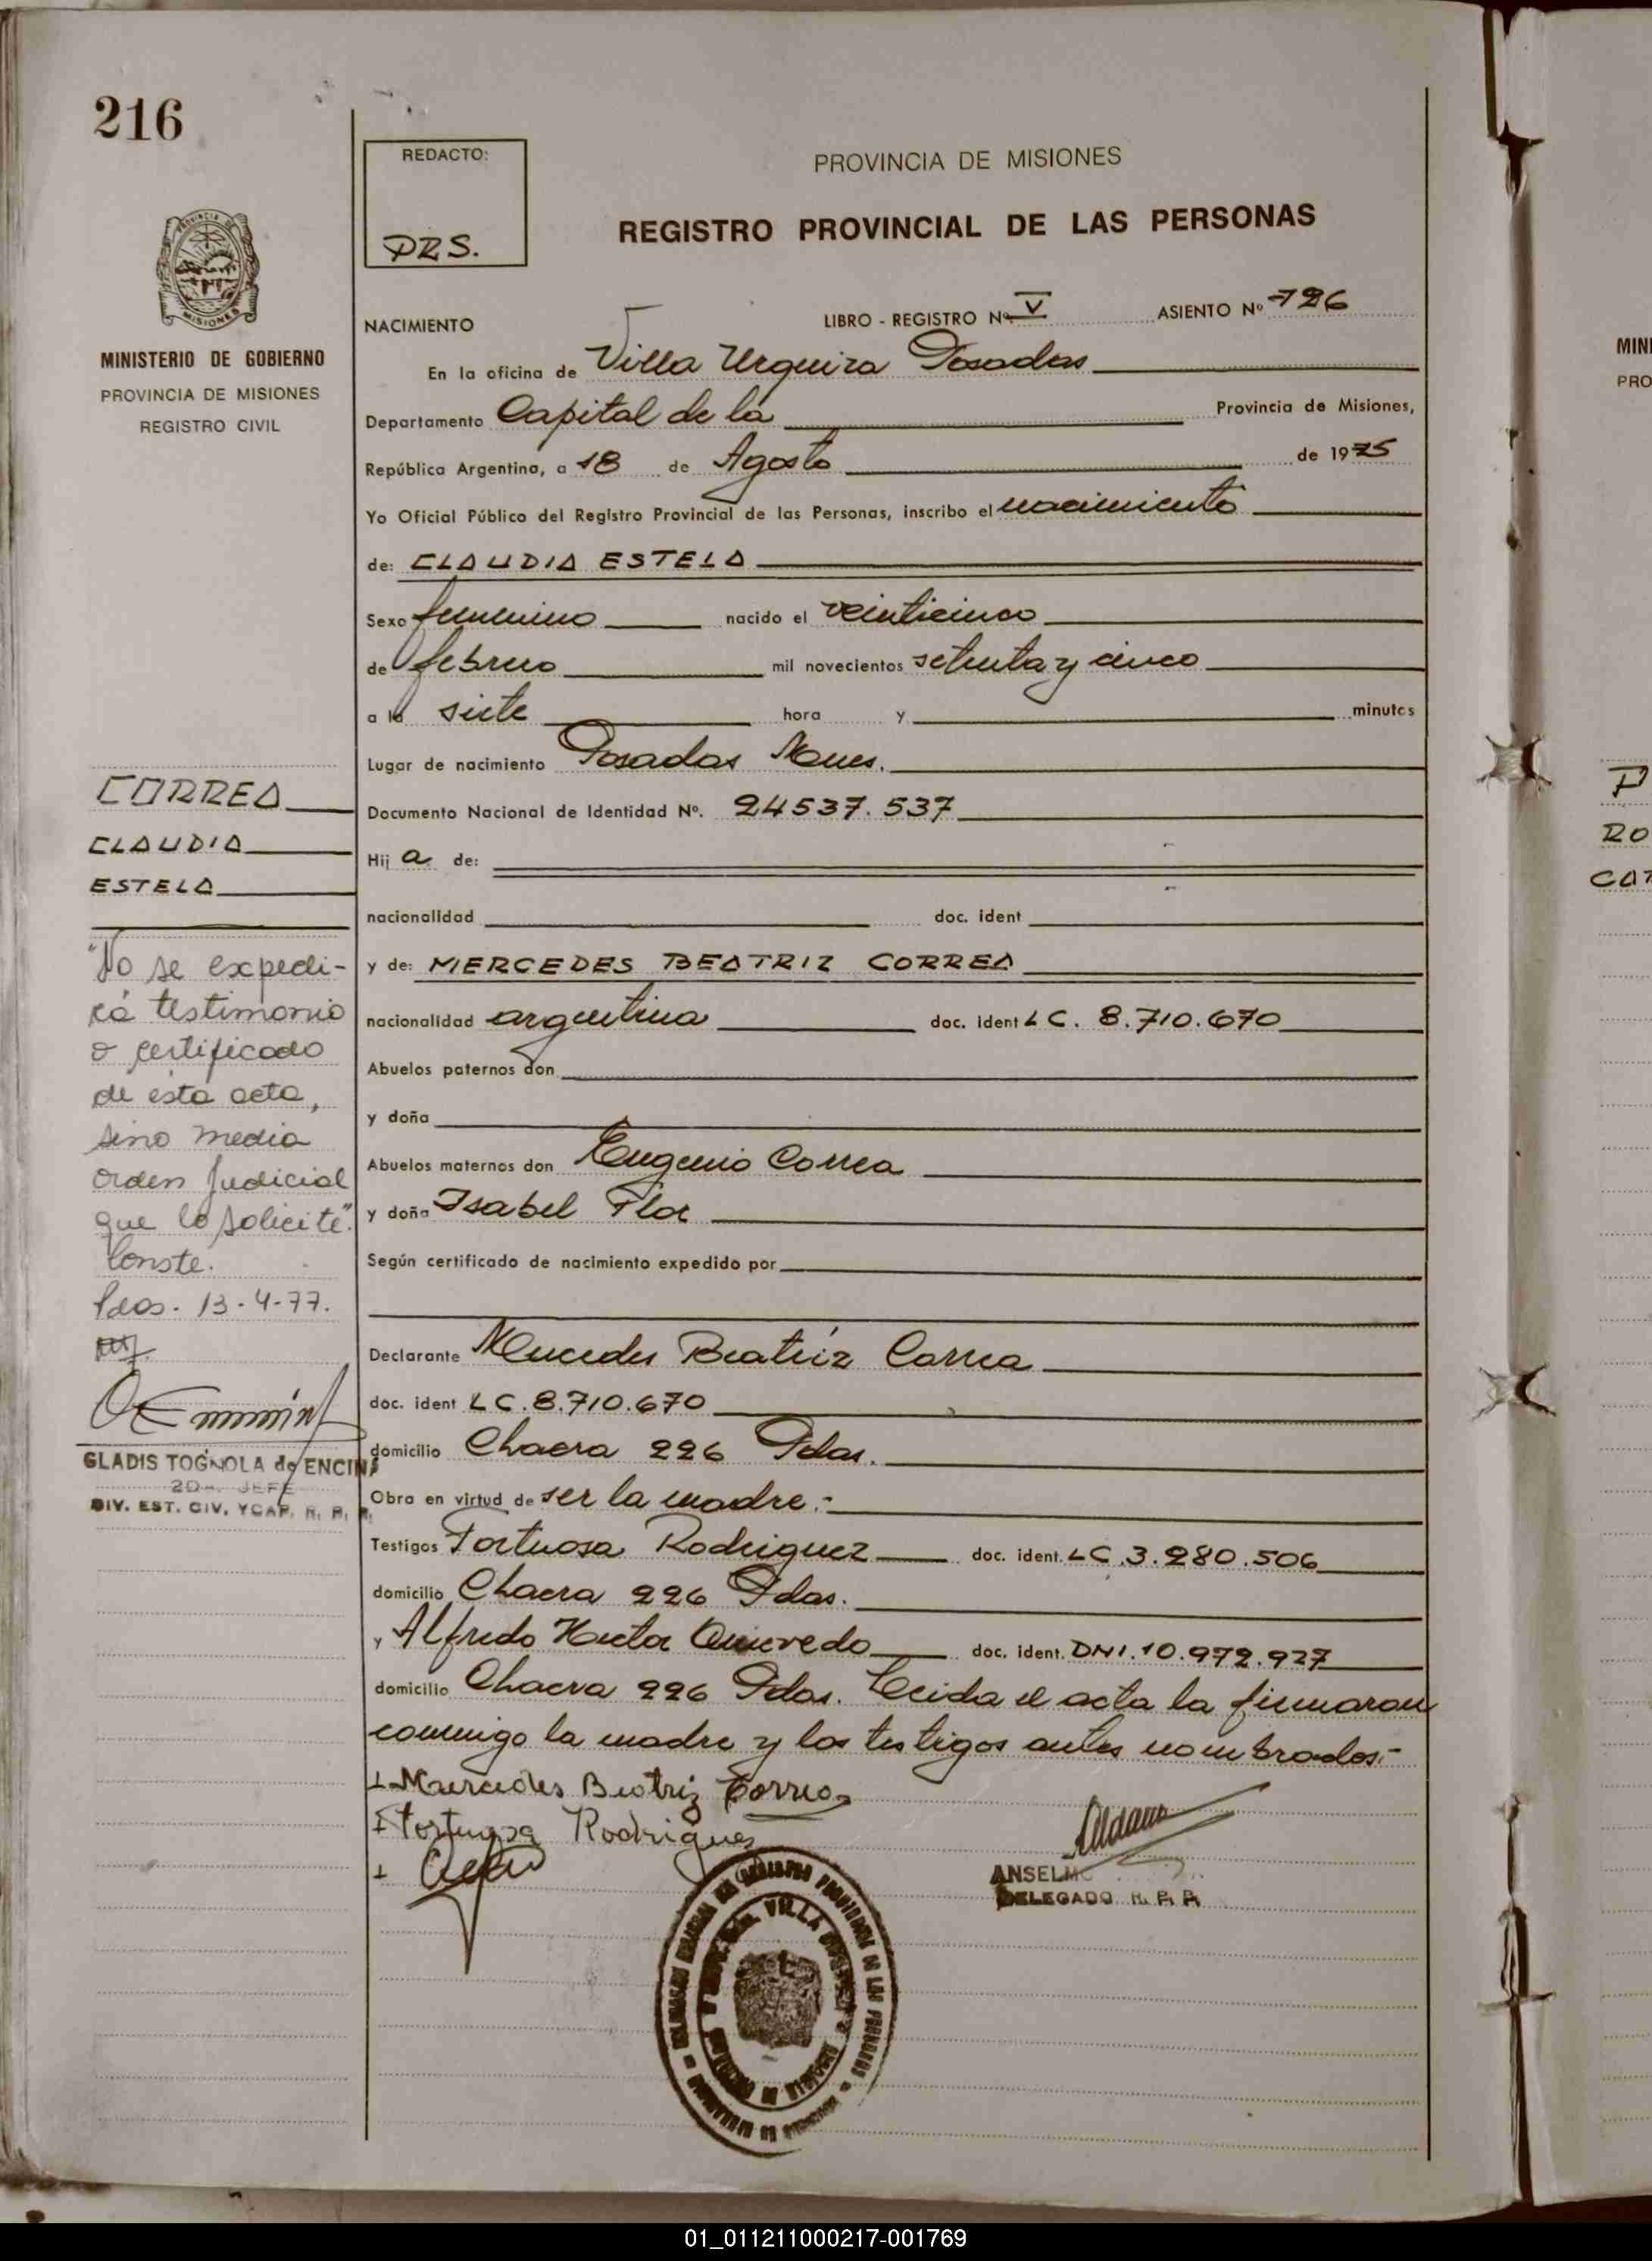 216
REDACTO:
PRS.
PROVINCIA DE MISIONES
REGISTRO PROVINCIAL DE LAS PERSONAS
PROVINCIA DE
MISIONES
MINISTERIO DE GOBIERNO
PROVINCIA DE MISIONES
REGISTRO CIVIL
NACIMIENTO LIBRO - REGISTRO Nº V ASIENTO Nº 726
En la oficina de Villa Urquiza Posadas
Departamento Capital de la Provincia de Misiones,
República Argentina, a 18 de Agosto de 1975
Yo Oficial Público del Registro Provincial de las Personas, inscribo el nacimiento
de: CLAUDIA ESTELA
Sexo femenino nacido el veinticinco
de febrero mil novecientos setenta y cinco
a la siete hora y minutos
Lugar de nacimiento Posadas Mnes.
Documento Nacional de Identidad Nº. 24537.537
Hij a de:
nacionalidad doc. ident
y de: MERCEDES BEATRIZ CORREA
nacionalidad argentina doc. ident LC. 8.710.670
Abuelos paternos don
y doña
Abuelos maternos don Eugenio Correa
y doña Isabel Flor
Según certificado de nacimiento expedido por
Declarante Mercedes Beatriz Correa
doc. ident LC.8.710.670
domicilio Chacra 226 Pdas.
Obra en virtud de ser la madre.-
Testigos Fortuosa Rodriguez doc. ident. LC.3.280.506
domicilio Chacra 226 Pdas.
y Alfredo Hector Quevedo doc. ident. DNI.10.972.927
domicilio Chacra 226 Pdas. Leida el acta la firmaron
conmigo la madre y los testigos antes nombrados.-
Mercedes Beatriz Correa
Fortuosa Rodrigues
ANSELMO
DELEGADO R. P. P.
VILLA
CORREA
CLAUDIA
ESTELA
"No se expedi-
rá testimonio
o certificado
de esta acta,
sino media
orden Judicial
que lo solicite".
Conste.
Pdas. 13-4-77.
GLADIS TOGNOLA de ENCINA
2DA. JEFE
DIV. EST. CIV. YCAP. R. P. P.
MINI
PRO
RO
CAT
01_011211000217-001769